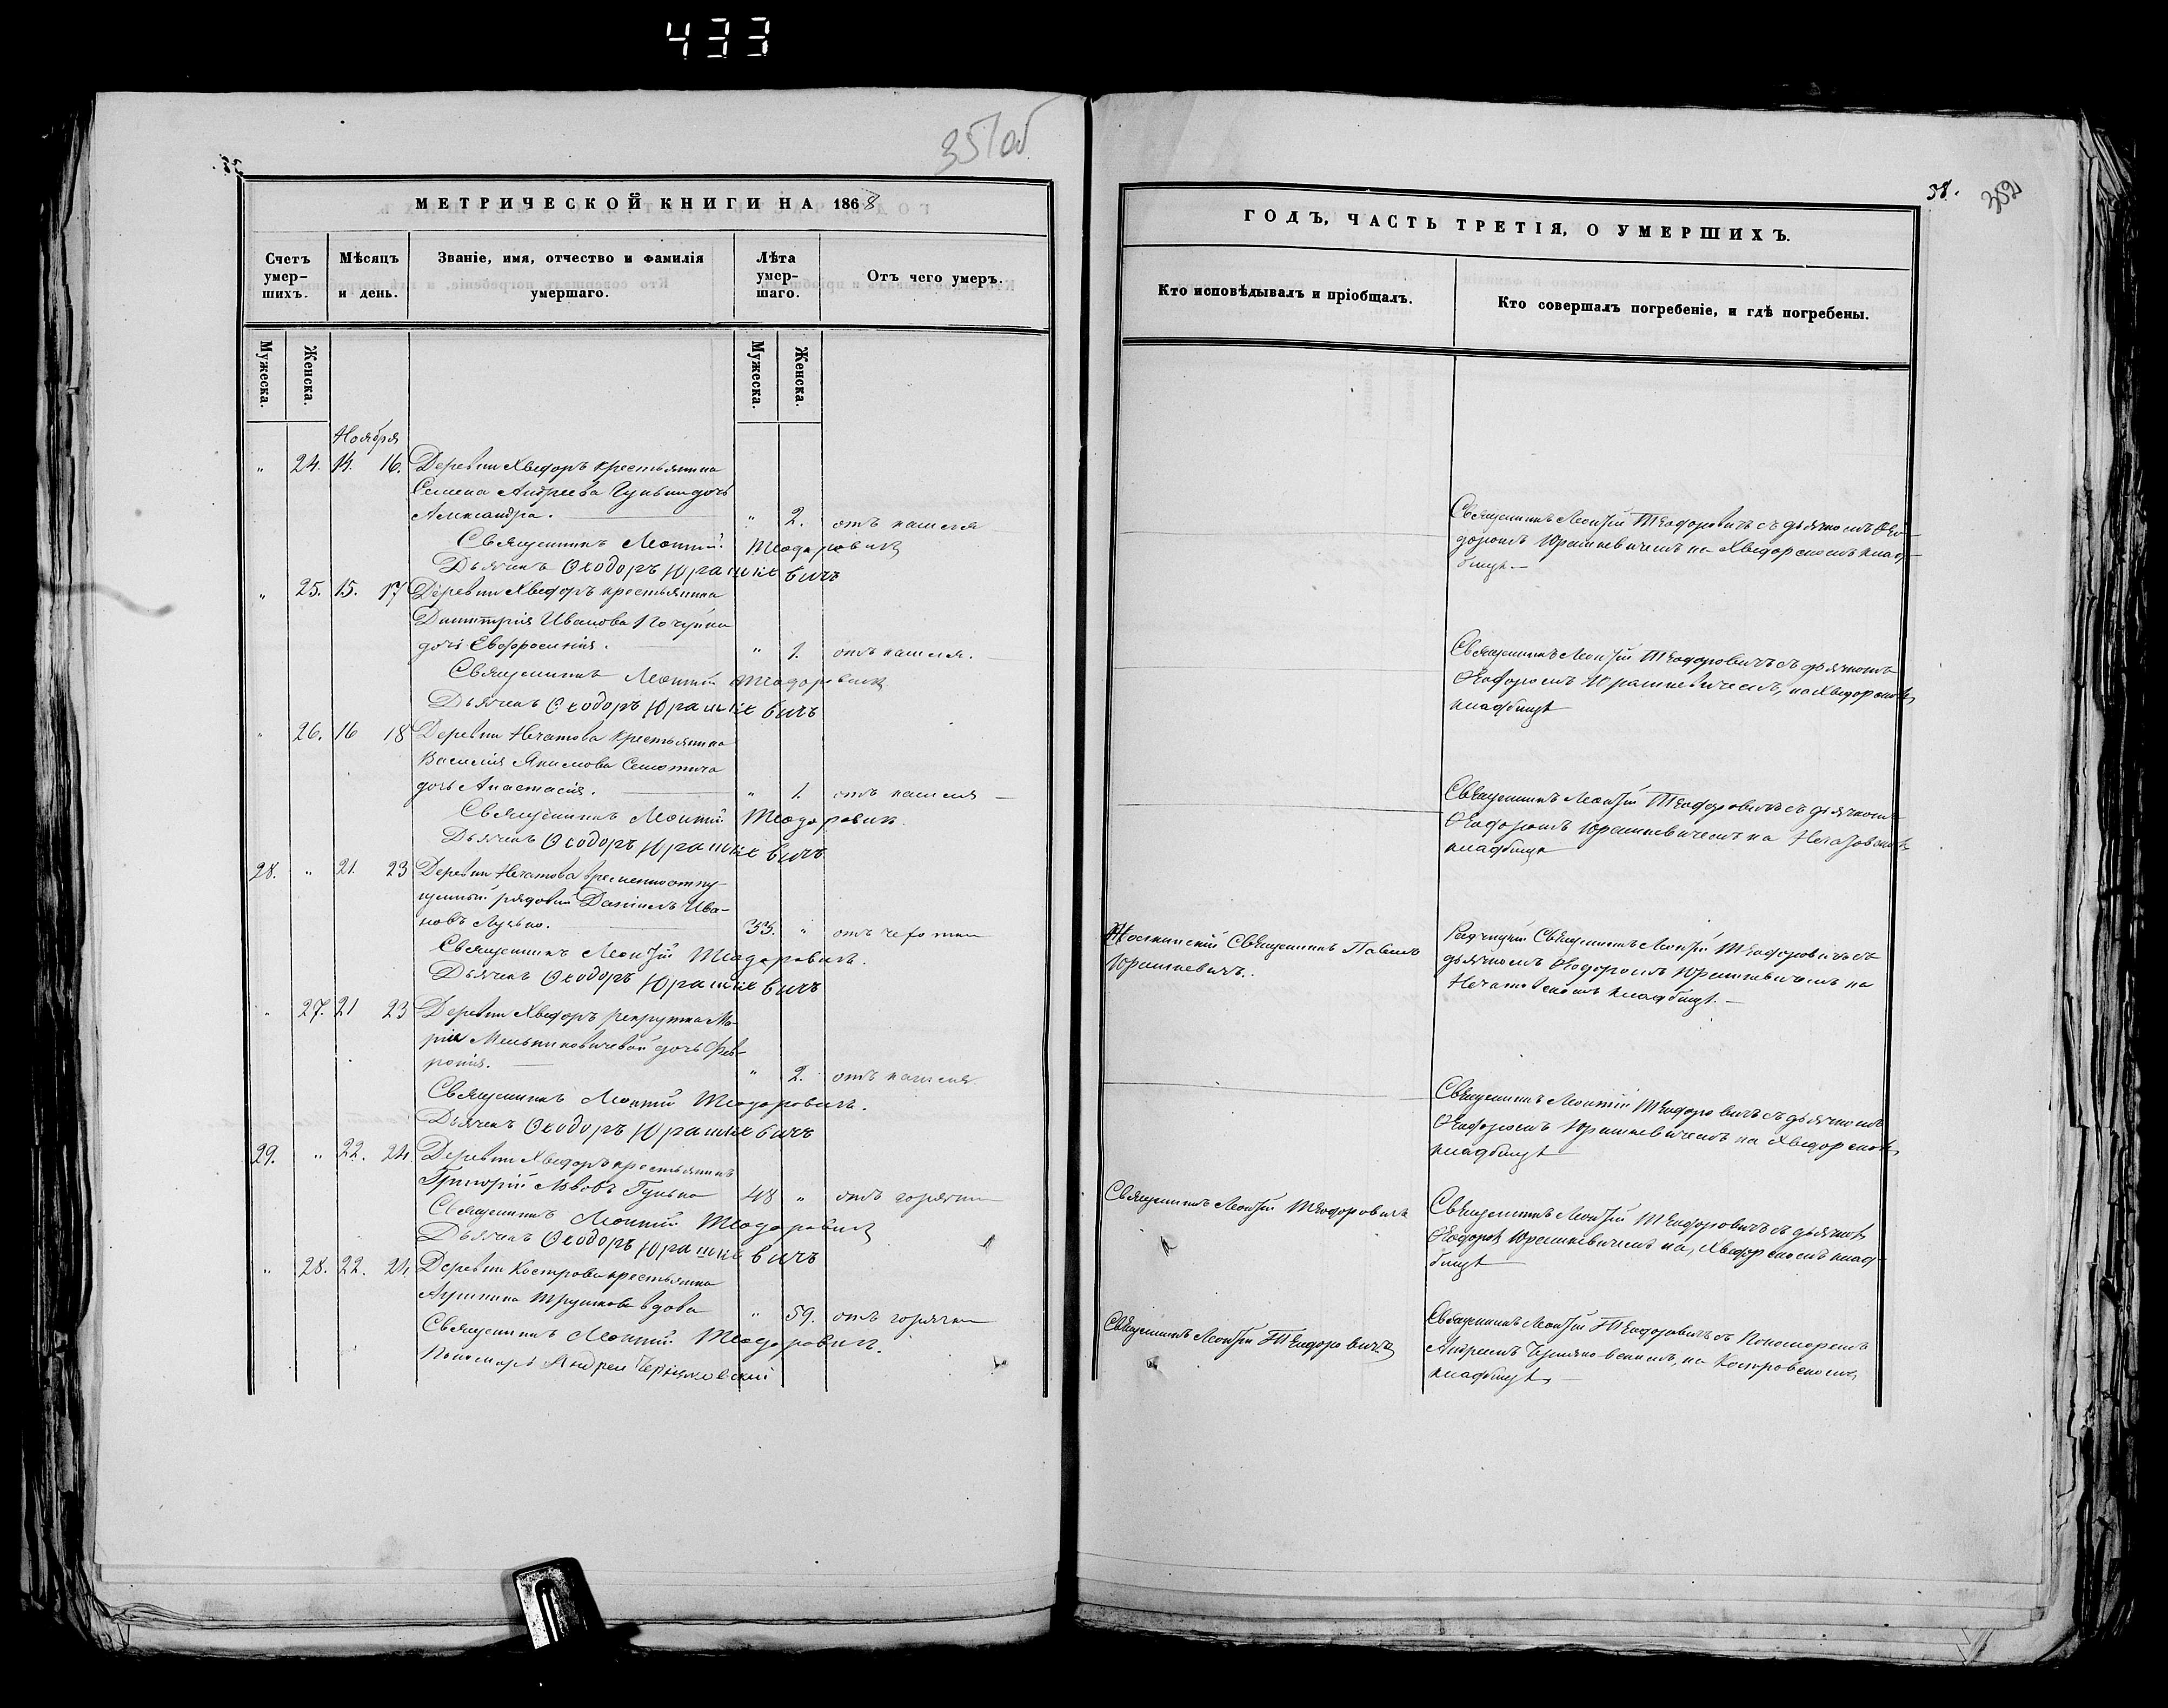 433
351об
МЕТРИЧЕСКОЙ КНИГИ НА 1868
Счетъ умер-шихъ.
Мѣсяцъ и день.
Званіе, имя, отчество и фамилія умершаго.
Лѣта умер-шаго.
Отъ чего умеръ.
Мужеска.
Женска.
Мужеска.
Женска.
Ноября
" 24. 14. 16. Деревни Хведоръ крестьянина
Семена Андреева Гунька дочь
Александра. " 2. отъ кашля
Священникъ Леонтій Теодоровичъ
Дьячекъ Ѳеодоръ Юрашкевичъ
" 25. 15. 17 Деревни Хведоръ крестьянина
Димитрія Иванова
дочь Евфросинія. " 1. отъ кашля.
Священникъ Леонтій Теодоровичъ
Дьячекъ Ѳеодоръ Юрашкевичъ
" 26. 16 18 Деревни Нечатова крестьянина
Василія Якимова
дочь Анастасія. " 1. отъ кашля
Священникъ Леонтій Теодоровичъ.
Дьячекъ Ѳеодоръ Юрашкевичъ
28. " 21. 23 Деревни Нечатова временноотпу-
щенный рядовой Даніилъ Ива-
новъ Лунько. 33. " отъ чахотки
Священникъ Леонтій Теодоровичъ.
Дьячекъ Ѳеодоръ Юрашкевичъ
" 27. 21 23 Деревни Хведоръ рекрутка Ма-
ріи Мельниковичевой дочь Фев-
ронія. " 2. отъ кашля.
Священникъ Леонтій Теодоровичъ.
Дьячекъ Ѳеодоръ Юрашкевичъ
29. " 22. 24. Деревни Хведоръ крестьянинъ
Григорій Львовъ Гунько 48 " отъ горячки
Священникъ Леонтій Теодоровичъ
Дьячекъ Ѳеодоръ Юрашкевичъ
" 28. 22. 24. Деревни Кострова крестьянка
вдова " 59. отъ горячки
Священникъ Леонтій Теодоровичъ.
Пономарь Андрей
38. 352
ГОДЪ, ЧАСТЬ ТРЕТІЯ, О УМЕРШИХЪ.
Кто исповѣдывалъ и пріобщалъ.
Кто совершалъ погребеніе, и гдѣ погребены.
Священникъ Леонтій Теодоровичъ съ дьячкомъ Ѳео-
доромъ Юрашкевичемъ на Хведорскомъ клад-
бищѣ.
Священникъ Леонтій Теодоровичъ съ дьячкомъ
Ѳеодоромъ Юрашкевичемъ, на Хведорскомъ
кладбищѣ
Священникъ Леонтій Теодоровичъ съ дьячкомъ
Ѳеодоромъ Юрашкевичемъ на Нечатовскомъ
кладбищѣ
Священникъ Павелъ
Юрашкевичъ.
Священникъ Леонтій Теодоровичъ съ
дьячкомъ Ѳеодоромъ Юрашкевичемъ на
Нечатовскомъ кладбищѣ.
Священникъ Леонтій Теодоровичъ съ дьячкомъ
Ѳеодоромъ Юрашкевичемъ на Хведорскомъ
кладбищѣ
Священникъ Леонтій Теодоровичъ
Священникъ Леонтій Теодоровичъ съ дьячкомъ
Ѳеодоромъ Юрашкевичемъ на Хведорскомъ клад-
бищѣ
Священникъ Леонтій Теодоровичъ
Священникъ Леонтій Теодоровичъ съ Пономаремъ
Андреемъ на Костровскомъ
кладбищѣ